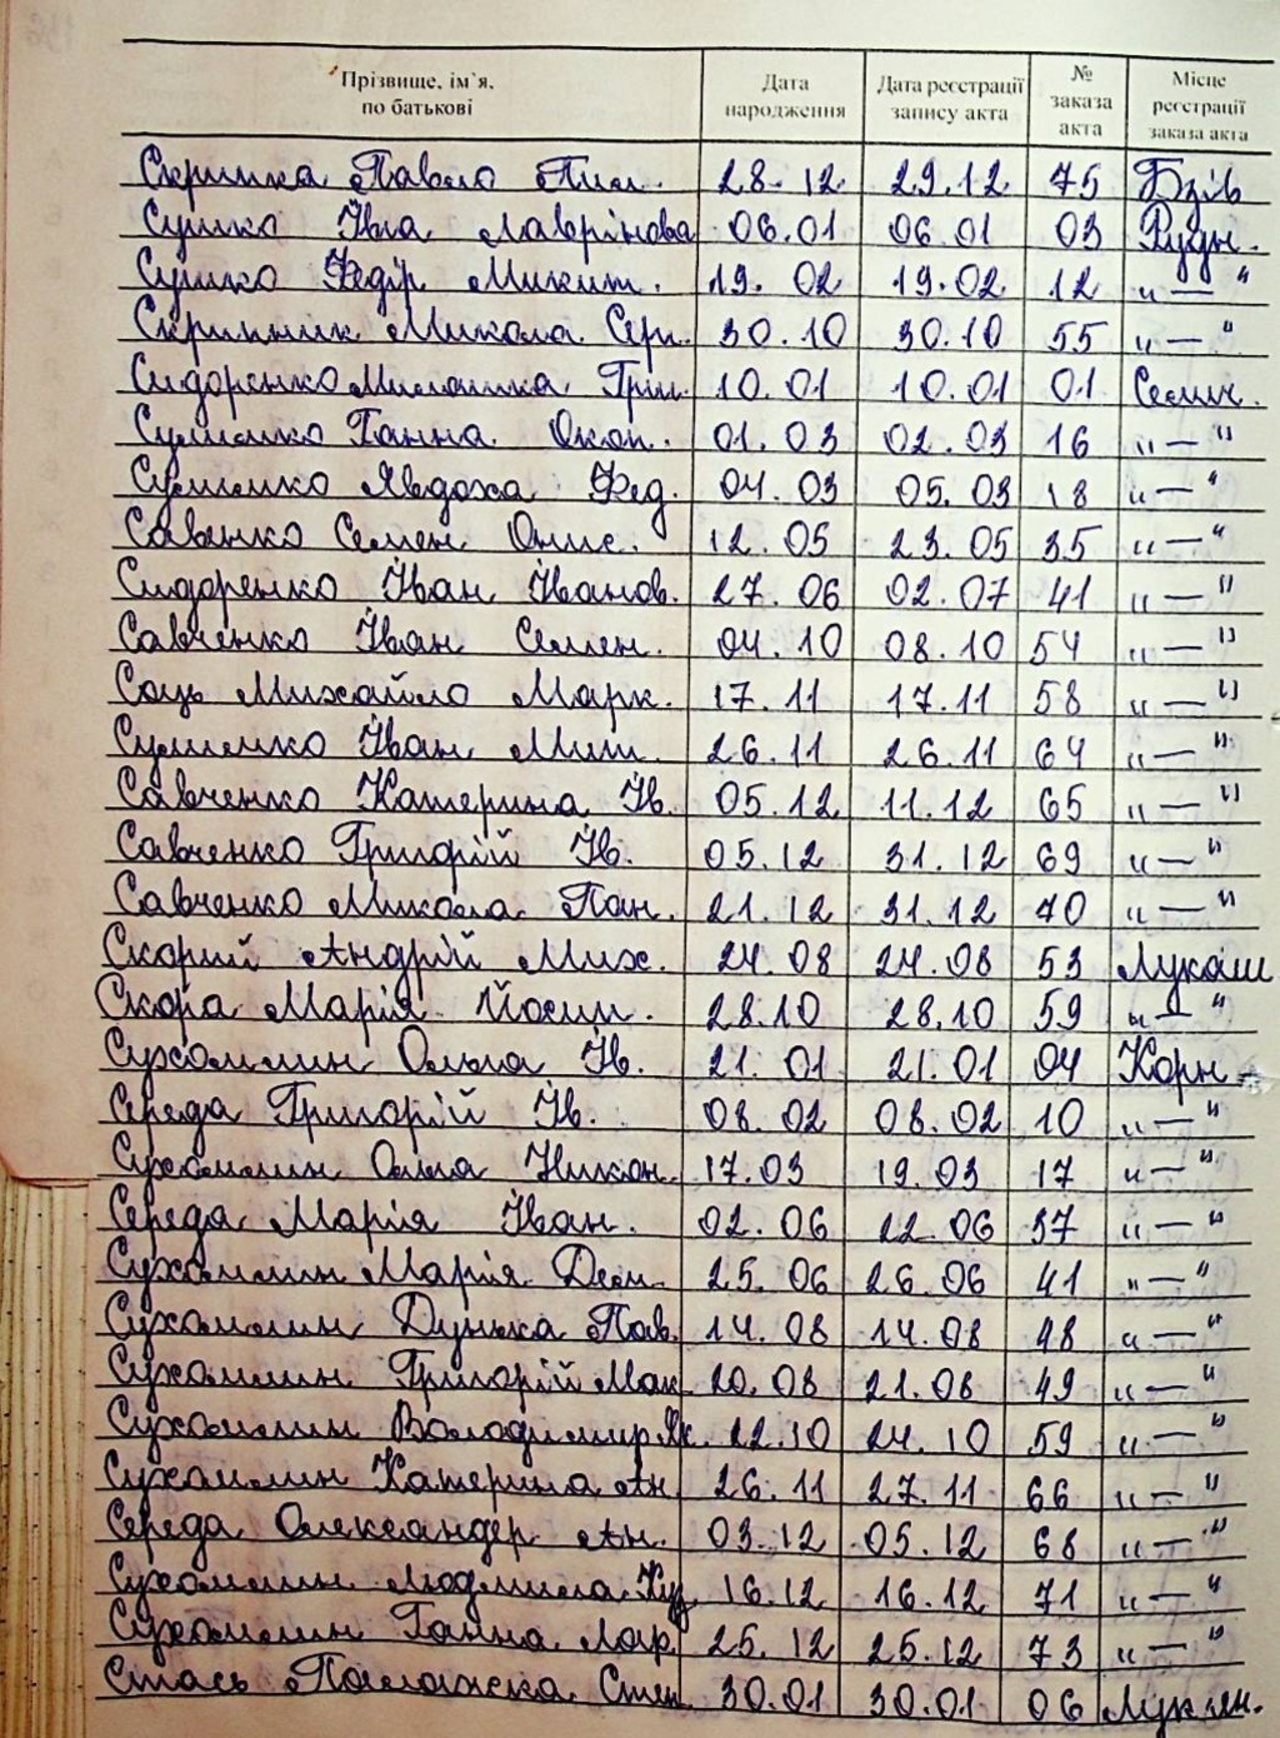 Прізвище, ім`я, по батькові Дата народження Дата реєстрації запису акта № заказа акта Місце реєстрації заказа акта
Скрипка Павло Пил. 28.12 29.12 75 Бзів
Сушко Івга Лаврінова 06.01 06.01 03 Рудн.
Сушко Федір Микит. 19.02 19.02 12 "—"
Скрипник Микола Сер. 30.10 30.10 55 "—"
Сидоренко Милашка Гри. 10.01 10.01 01 Селич.
Сулимко Ганна Окоп. 01.03 02.03 16 "—"
Сулимко Явдоха Фед. 04.03 05.03 18 "—"
Савенко Семен Онис. 12.05 23.05 35 "—"
Сидоренко Іван Іванов. 27.06 02.07 41 "—"
Савченко Іван Семен. 04.10 08.10 54 "—"
Соць Михайло Марк. 17.11 17.11 58 "—"
Сулимко Іван Мит. 26.11 26.11 64 "—"
Савченко Катерина Ів. 05.12 11.12 65 "—"
Савченко Григорій Ів. 05.12 31.12 69 "—"
Савченко Микола Пан. 21.12 31.12 70 "—"
Скорий Андрій Мих. 24.08 24.08 53 Лукаш
Скора Марія Йосип. 28.10 28.10 59 "—"
Сухомлин Ольга Ів. 21.01 21.01 04 Корн
Середа Григорій Ів. 08.02 08.02 10 "—"
Сухомлин Ольга Никон. 17.03 19.03 17 "—"
Середа Марія Іван. 02.06 22.06 37 "—"
Сухомлин Марія Дем. 25.06 26.06 41 "—"
Сухомлин Дунька Пав. 14.08 14.08 48 "—"
Сухомлин Григорій Мак. 20.08 21.08 49 "—"
Сухомлин Володимир Як. 22.10 24.10 59 "—"
Сухомлин Катерина Ан. 26.11 27.11 66 "—"
Середа Олександер Ан. 03.12 05.12 68 "—"
Сухомлин Людмила Куз. 16.12 16.12 71 "—"
Сухомлин Ганна Лар. 25.12 25.12 73 "—"
Стась Палажка Степ. 30.01 30.01 06 Лукян.